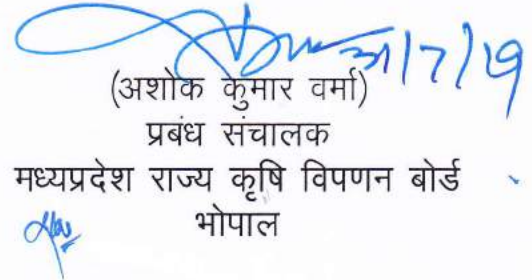 31/7/19
(अशोक कुमार वर्मा)
प्रबंध संचालक
मध्यप्रदेश राज्य कृषि विपणन बोर्ड
भोपाल